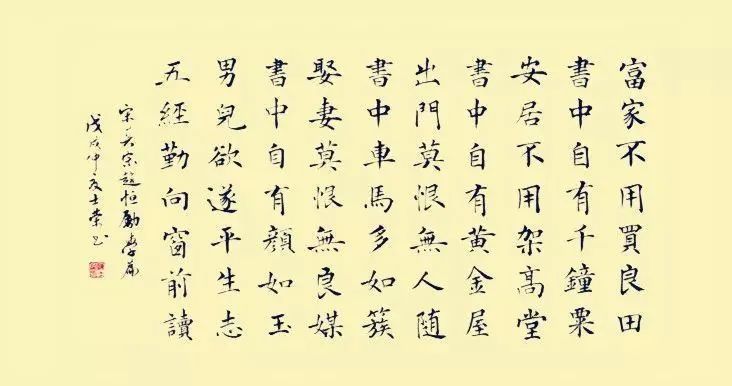 富家不用買良田
書中自有千鐘粟
安居不用架高堂
書中自有黃金屋
出門莫恨無人隨
書中車馬多如簇
娶妻莫恨無良媒
書中自有顏如玉
男兒欲遂平生志
五經勤向窗前讀
宋真宗趙恒勵學篇
戊戌仲夏士榮书